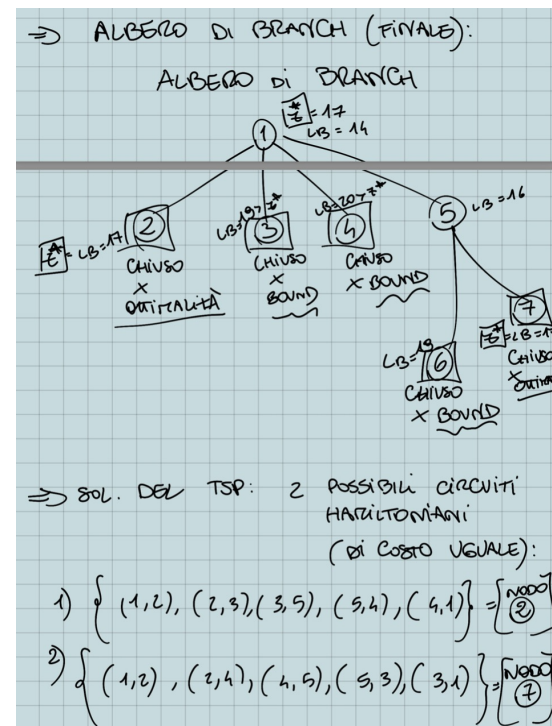 => ALBERO DI BRANCH (FINALE):
ALBERO Di BRANCH
z* = 17
LB = 14
1
z* = LB = 17
2
CHIUSO
X
OTTIMALITÀ
LB = 19 > z*
3
CHIUSO
X
BOUND
LB = 20 > z*
4
CHIUSO
X BOUND
5
LB = 16
LB = 19
6
CHIUSO
X BOUND
7
z* = LB = 1
CHIUSO
X
=> SOL. DEL TSP: 2 POSSIBILI CIRCUITI
HAMILTONIANI
(DI COSTO UGUALE):
1) { (1,2), (2,3), (3,5), (5,4), (4,1) } = [NODO 2
2) { (1,2), (2,4), (4,5), (5,3), (3,1) } = [NODO 7